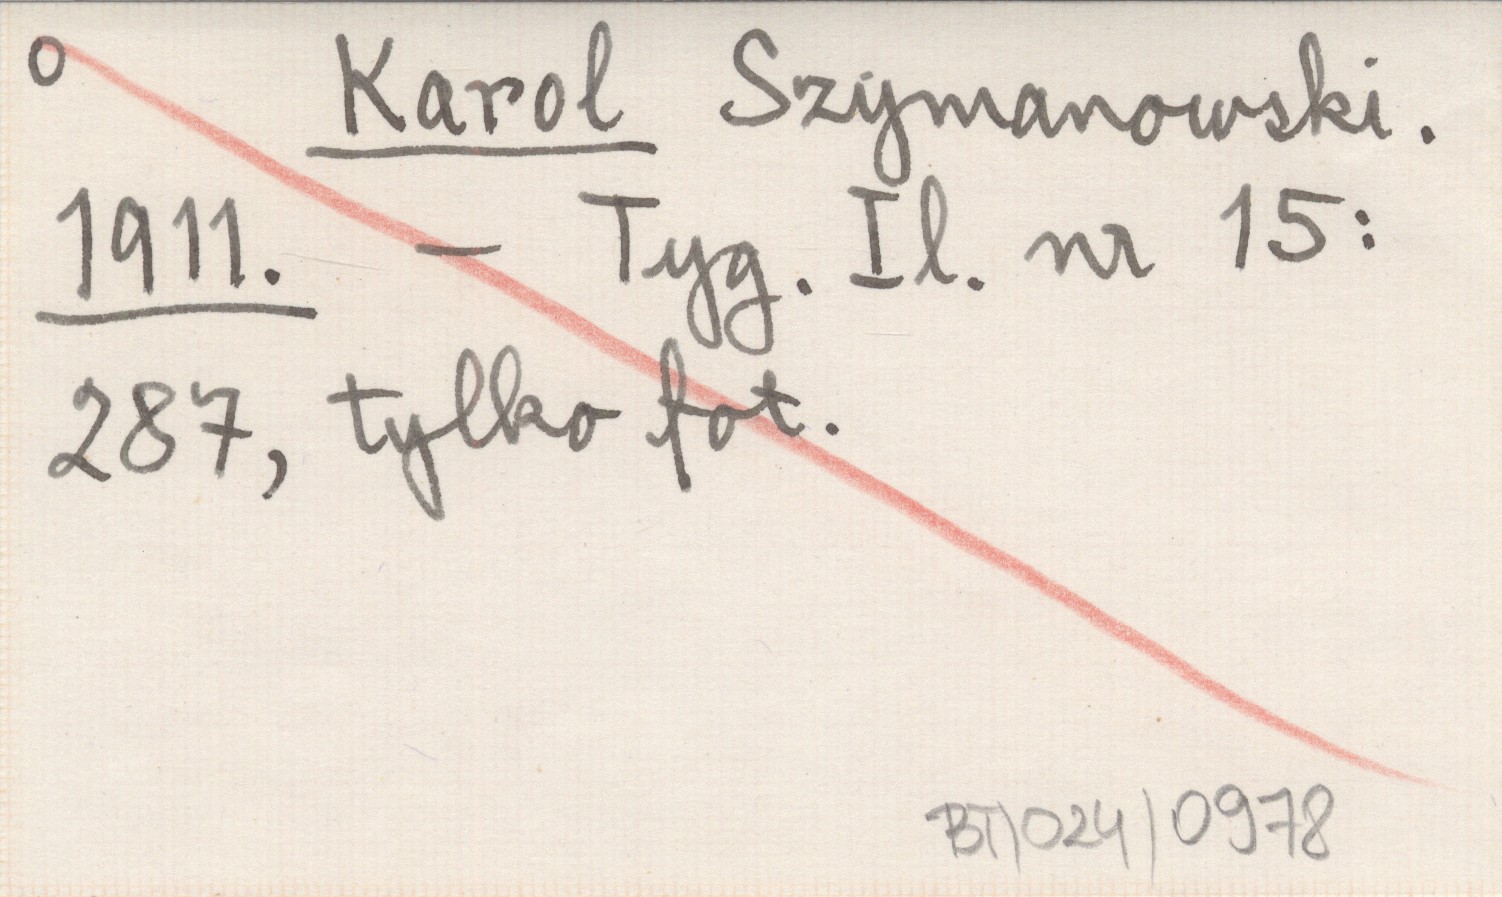 o Karol Szymanowski.
1911. – Tyg. Il. nr 15:
287, tylko fot.
BT/024/0978